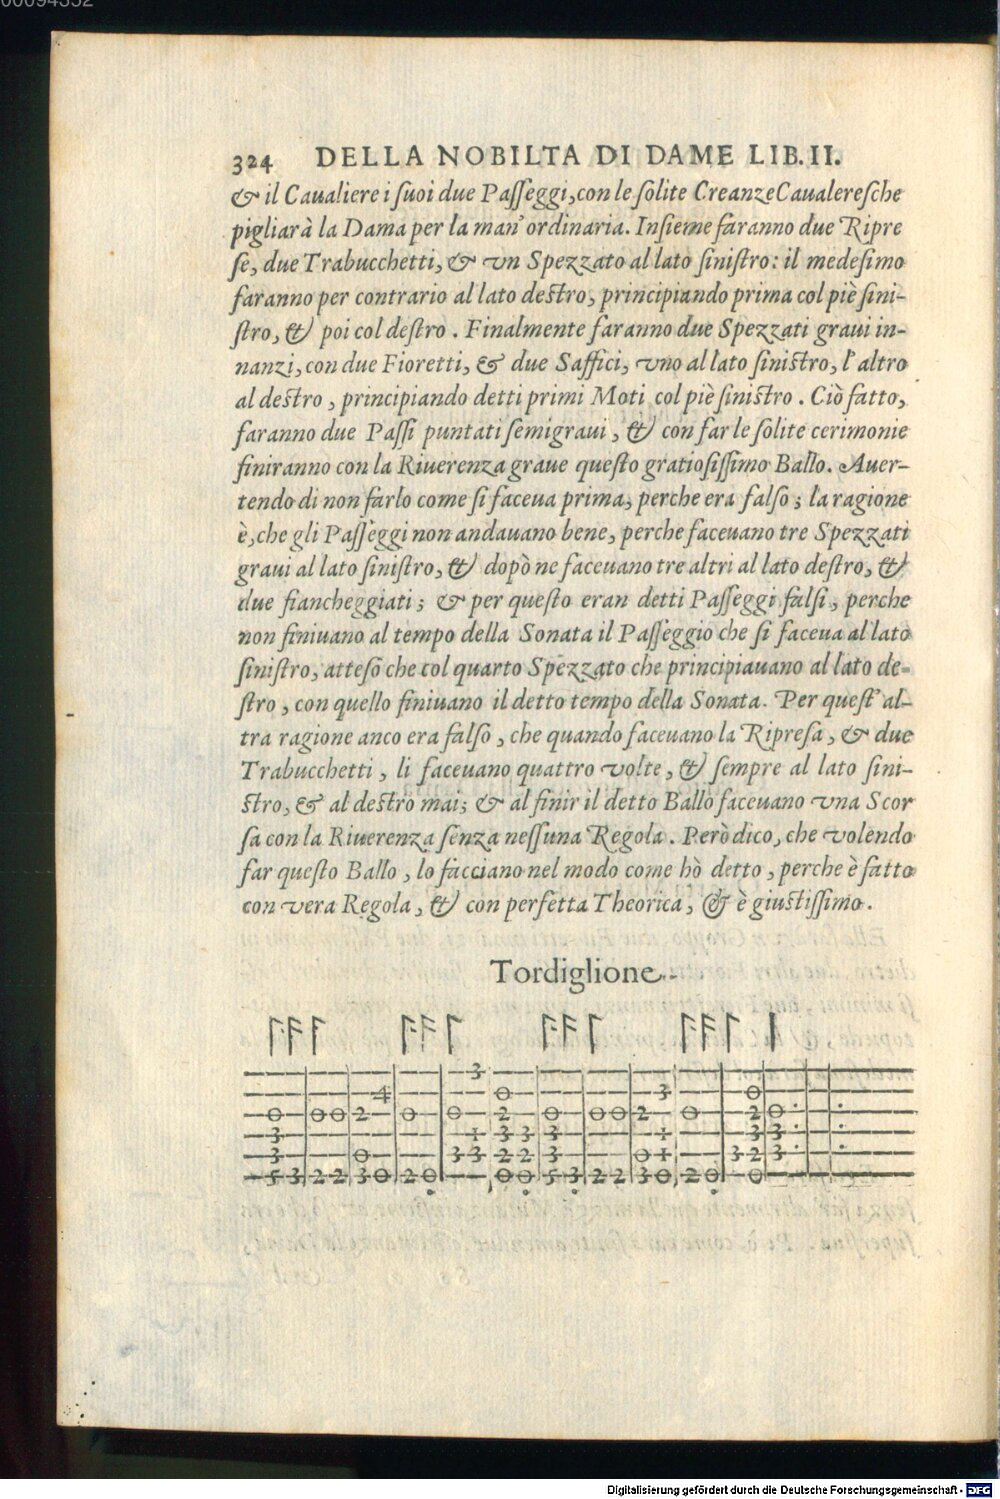 324 DELLA NOBILTA DI DAME LIB. II.
& il Caualiere i ſuoi due Paſſeggi, con le ſolite Creanze Caualereſche
pigliarà la Dama per la man' ordinaria. Inſieme faranno due Ripre
ſe, due Trabucchetti, & vn Spezzato al lato ſiniſtro: il medeſimo
faranno per contrario al lato deſtro, principiando prima col piè ſini-
ſtro, & poi col deſtro. Finalmente faranno due Spezzati graui in-
nanzi, con due Fioretti, & due Saffici, vno al lato ſiniſtro, l'altro
al deſtro, principiando detti primi Moti col piè ſiniſtro. Ciò fatto,
faranno due Paſſi puntati ſemigraui, & con far le ſolite cerimonie
finiranno con la Riuerenza graue queſto gratioſiſſimo Ballo. Auer-
tendo di non farlo come ſi faceua prima, perche era falſo; la ragione
è, che gli Paſſeggi non andauano bene, perche faceuano tre Spezzati
graui al lato ſiniſtro, & dopò ne faceuano tre altri al lato deſtro, &
due fiancheggiati; & per queſto eran detti Paſſeggi falſi, perche
non finiuano al tempo della Sonata il Paſſeggio che ſi faceua al lato
ſiniſtro, atteſo che col quarto Spezzato che principiauano al lato de-
ſtro, con quello finiuano il detto tempo della Sonata. Per queſt' al-
tra ragione anco era falſo, che quando faceuano la Ripreſa, & due
Trabucchetti, li faceuano quattro volte, & ſempre al lato ſini-
ſtro, & al deſtro mai; & al finir il detto Ballo faceuano vna Scor
ſa con la Riuerenza ſenza neſſuna Regola. Però dico, che volendo
far queſto Ballo, lo facciano nel modo come hò detto, perche è fatto
con vera Regola, & con perfetta Theorica, & è giuſtiſſimo.
Tordiglione.
3
4 0 3 0
0 0 0 2 0 0 2 0 0 0 2 0 2 0
3 1 3 3 3 1 3 3
3 0 3 3 2 2 3 0 1 3 2 3
5 3 2 2 3 0 2 0 0 0 5 3 2 2 3 0 2 0 0
Digitalisierung gefördert durch die Deutsche Forschungsgemeinschaft - DFG